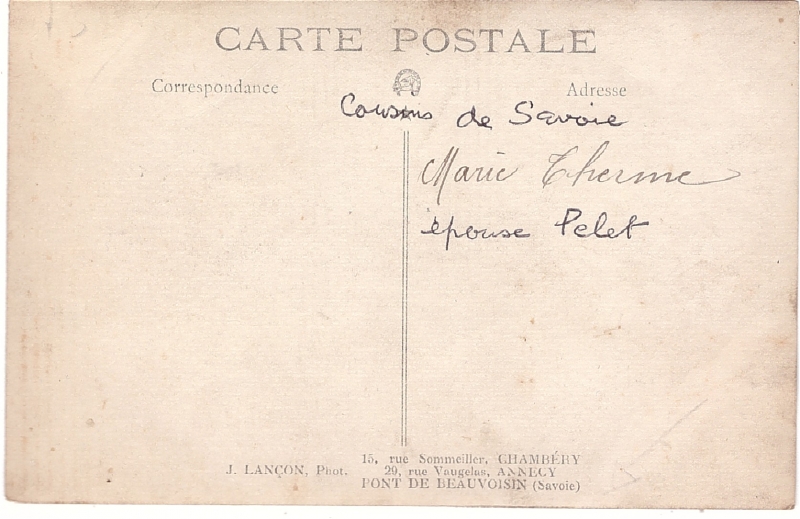 CARTE POSTALE
Correspondance
Adresse
Cousins de Savoie
Marie Therme
épouse Pelet
15, rue Sommeiller, CHAMBÉRY
J. LANÇON, Phot. 29, rue Vaugelas, ANNECY
PONT DE BEAUVOISIN (Savoie)